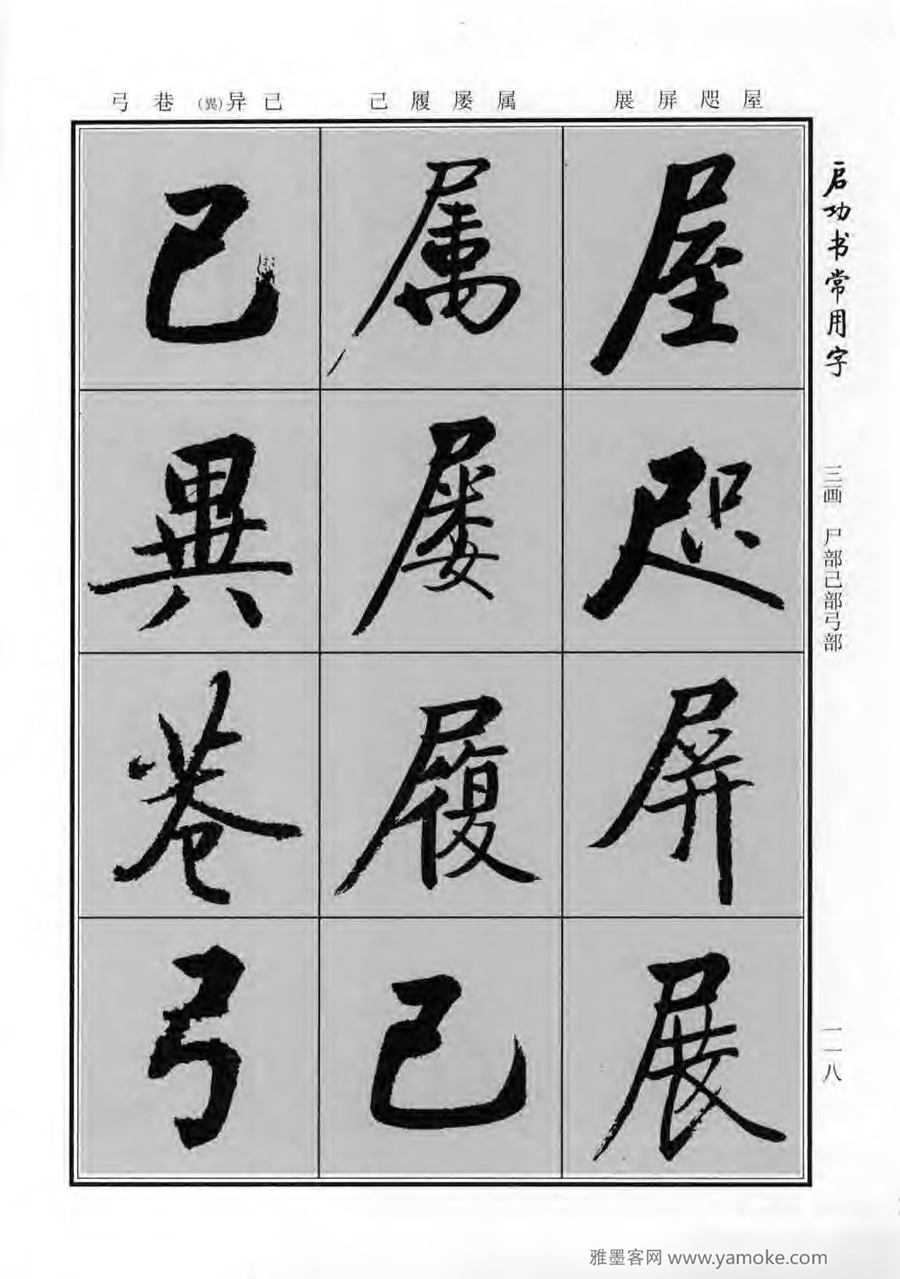 弓 巷 (異)异 已
己 履 屡 属
展 屏 咫 屋
启功书常用字
三画 尸部己部弓部
一一八
屋
咫
屏
展
属
屡
履
己
已
異
巷
弓
雅墨客网 www.yamoke.com